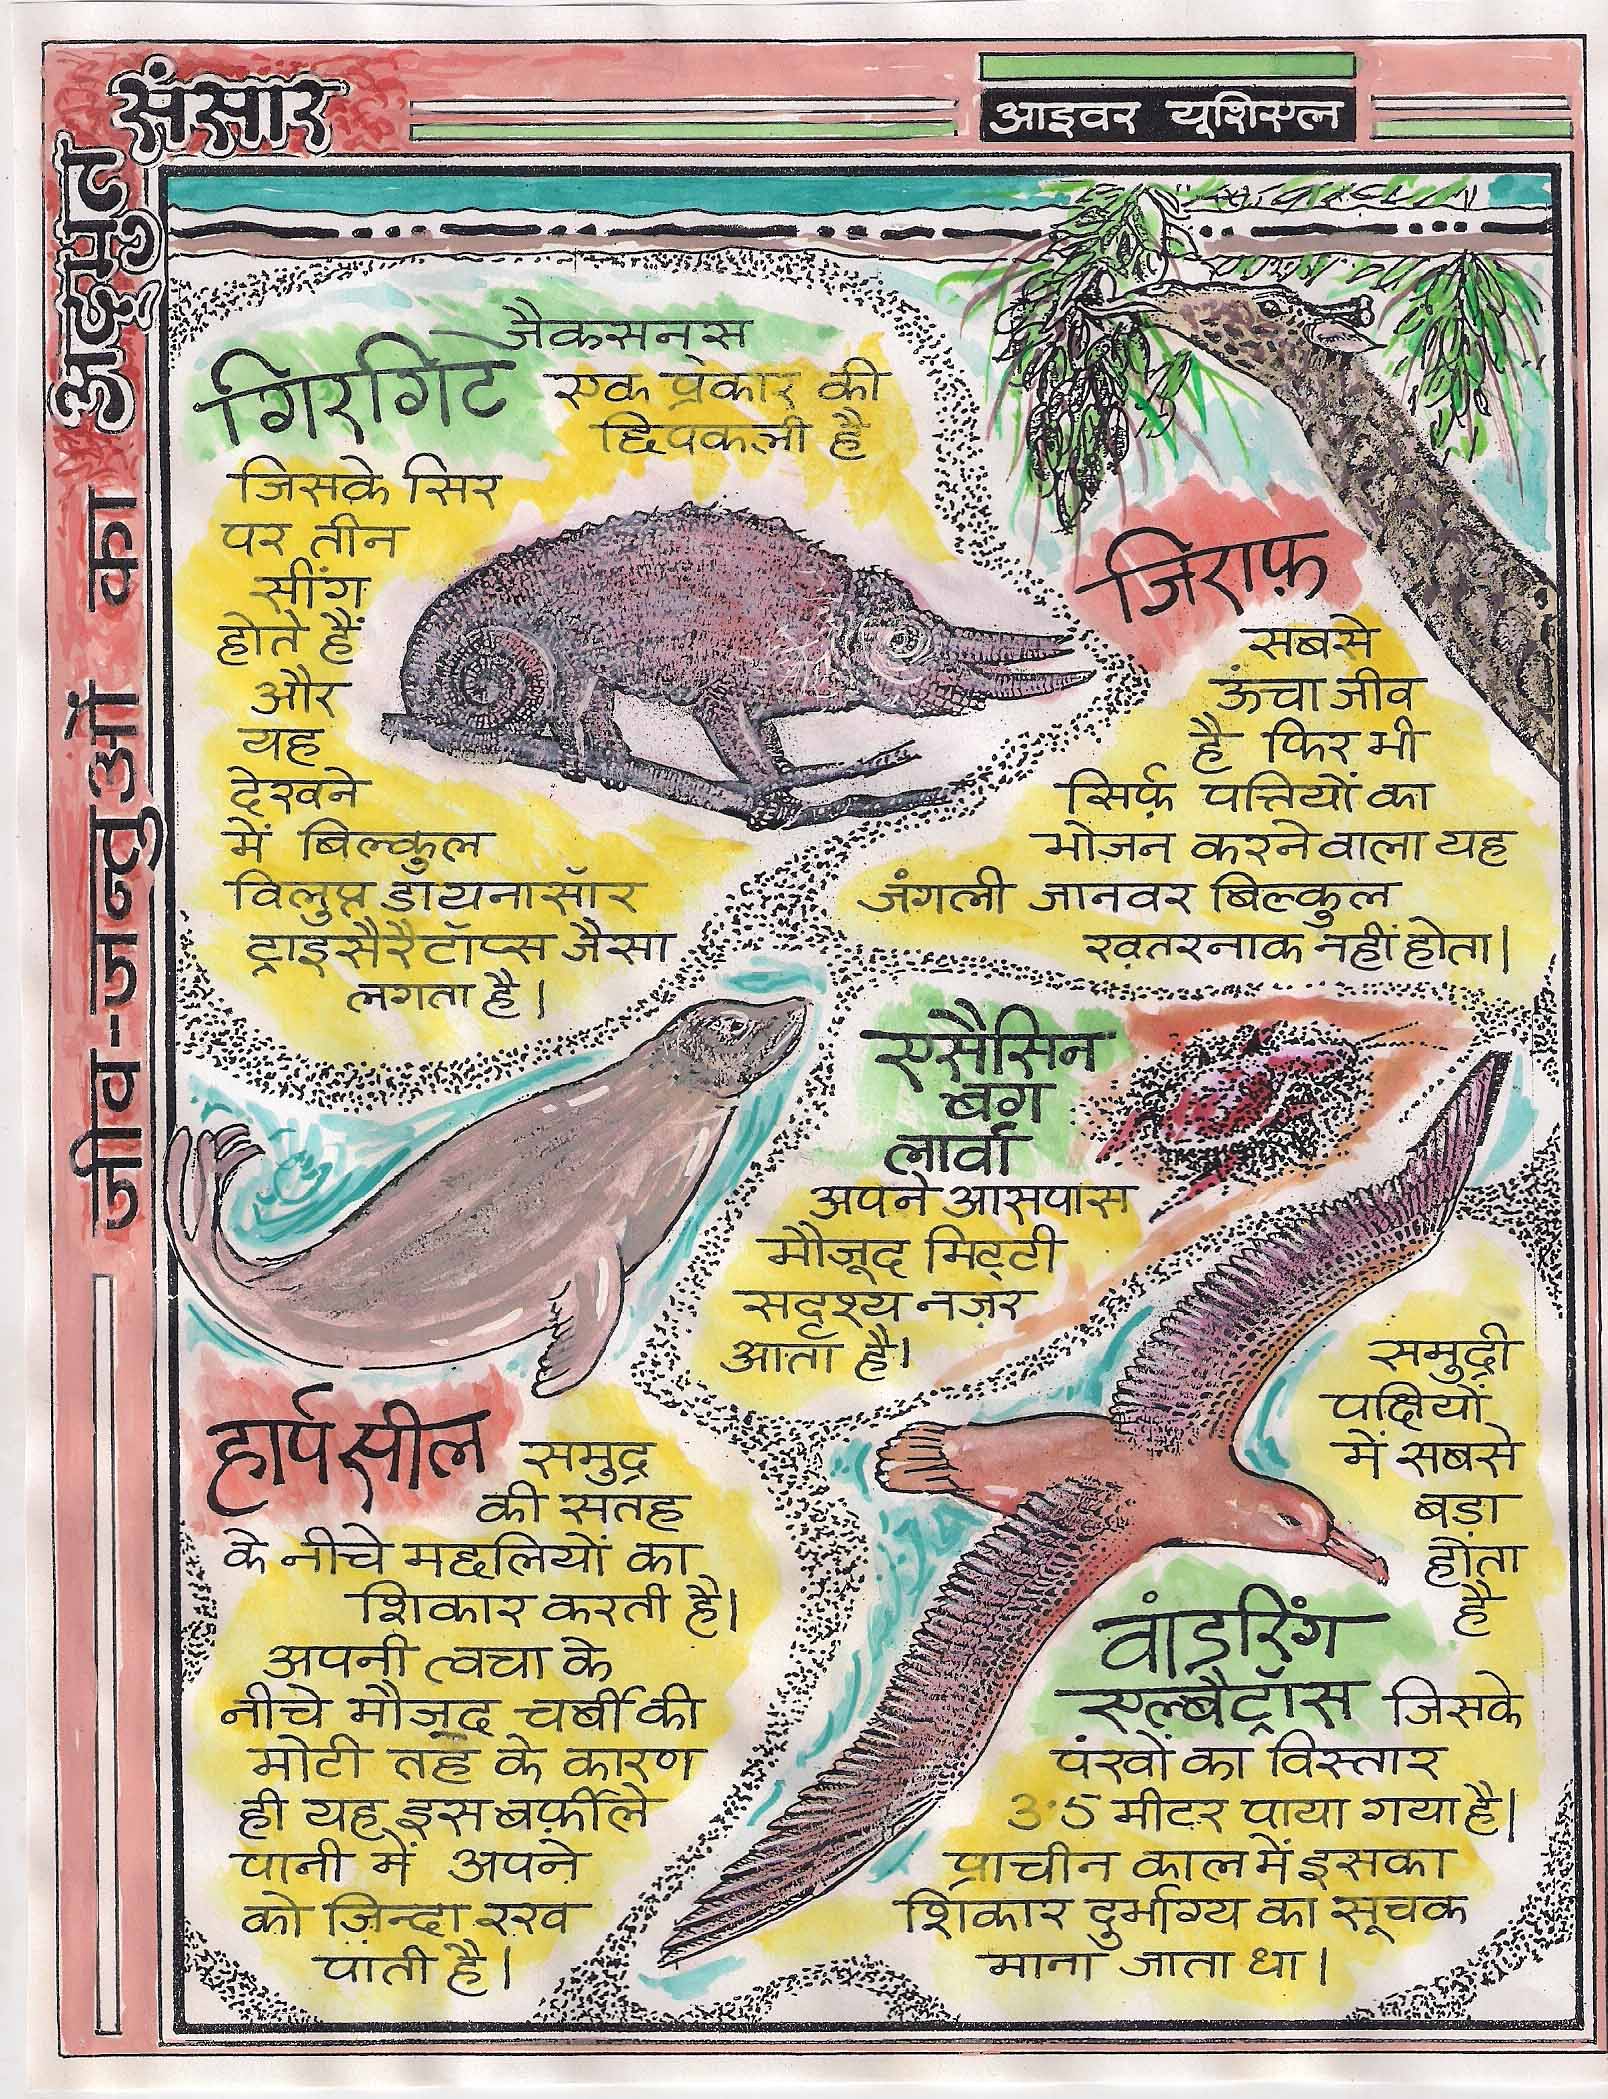 जीव-जन्तुओं का अद्भुत संसार
आइवर यूशिएल
जैकसन्स
गिरगिट एक प्रकार की
छिपकली है
जिसके सिर
पर तीन
सींग
होते हैं
और
यह
देखने
में बिल्कुल
विलुप्त डॉयनासॉर
ट्राइसैरैटॉप्स जैसा
लगता है।
जिराफ़
सबसे
ऊंचा जीव
है फिर भी
सिर्फ़ पत्तियों का
भोजन करने वाला यह
जंगली जानवर बिल्कुल
ख़तरनाक नहीं होता।
एसैसिन
बग
लार्वा
अपने आसपास
मौजूद मिट्टी
सदृश्य नज़र
आर्ता है।
हार्प सील समुद्र
की सतह
के नीचे मछलियों का
शिकार करती है।
अपनी त्वचा के
नीचे मौजूद चर्बी की
मोटी तह के कारण
ही यह इस बर्फ़ीले
पानी में अपने
को ज़िन्दा रख
पाती है।
समुद्री
पक्षियों
में सबसे
बड़ा
होता
है
वांडरिंग
एल्बैट्रॉस जिसके
पंखों का विस्तार
3·5 मीटर पाया गया है।
प्राचीन काल में इसका
शिकार दुर्भाग्य का सूचक
माना जाता था।